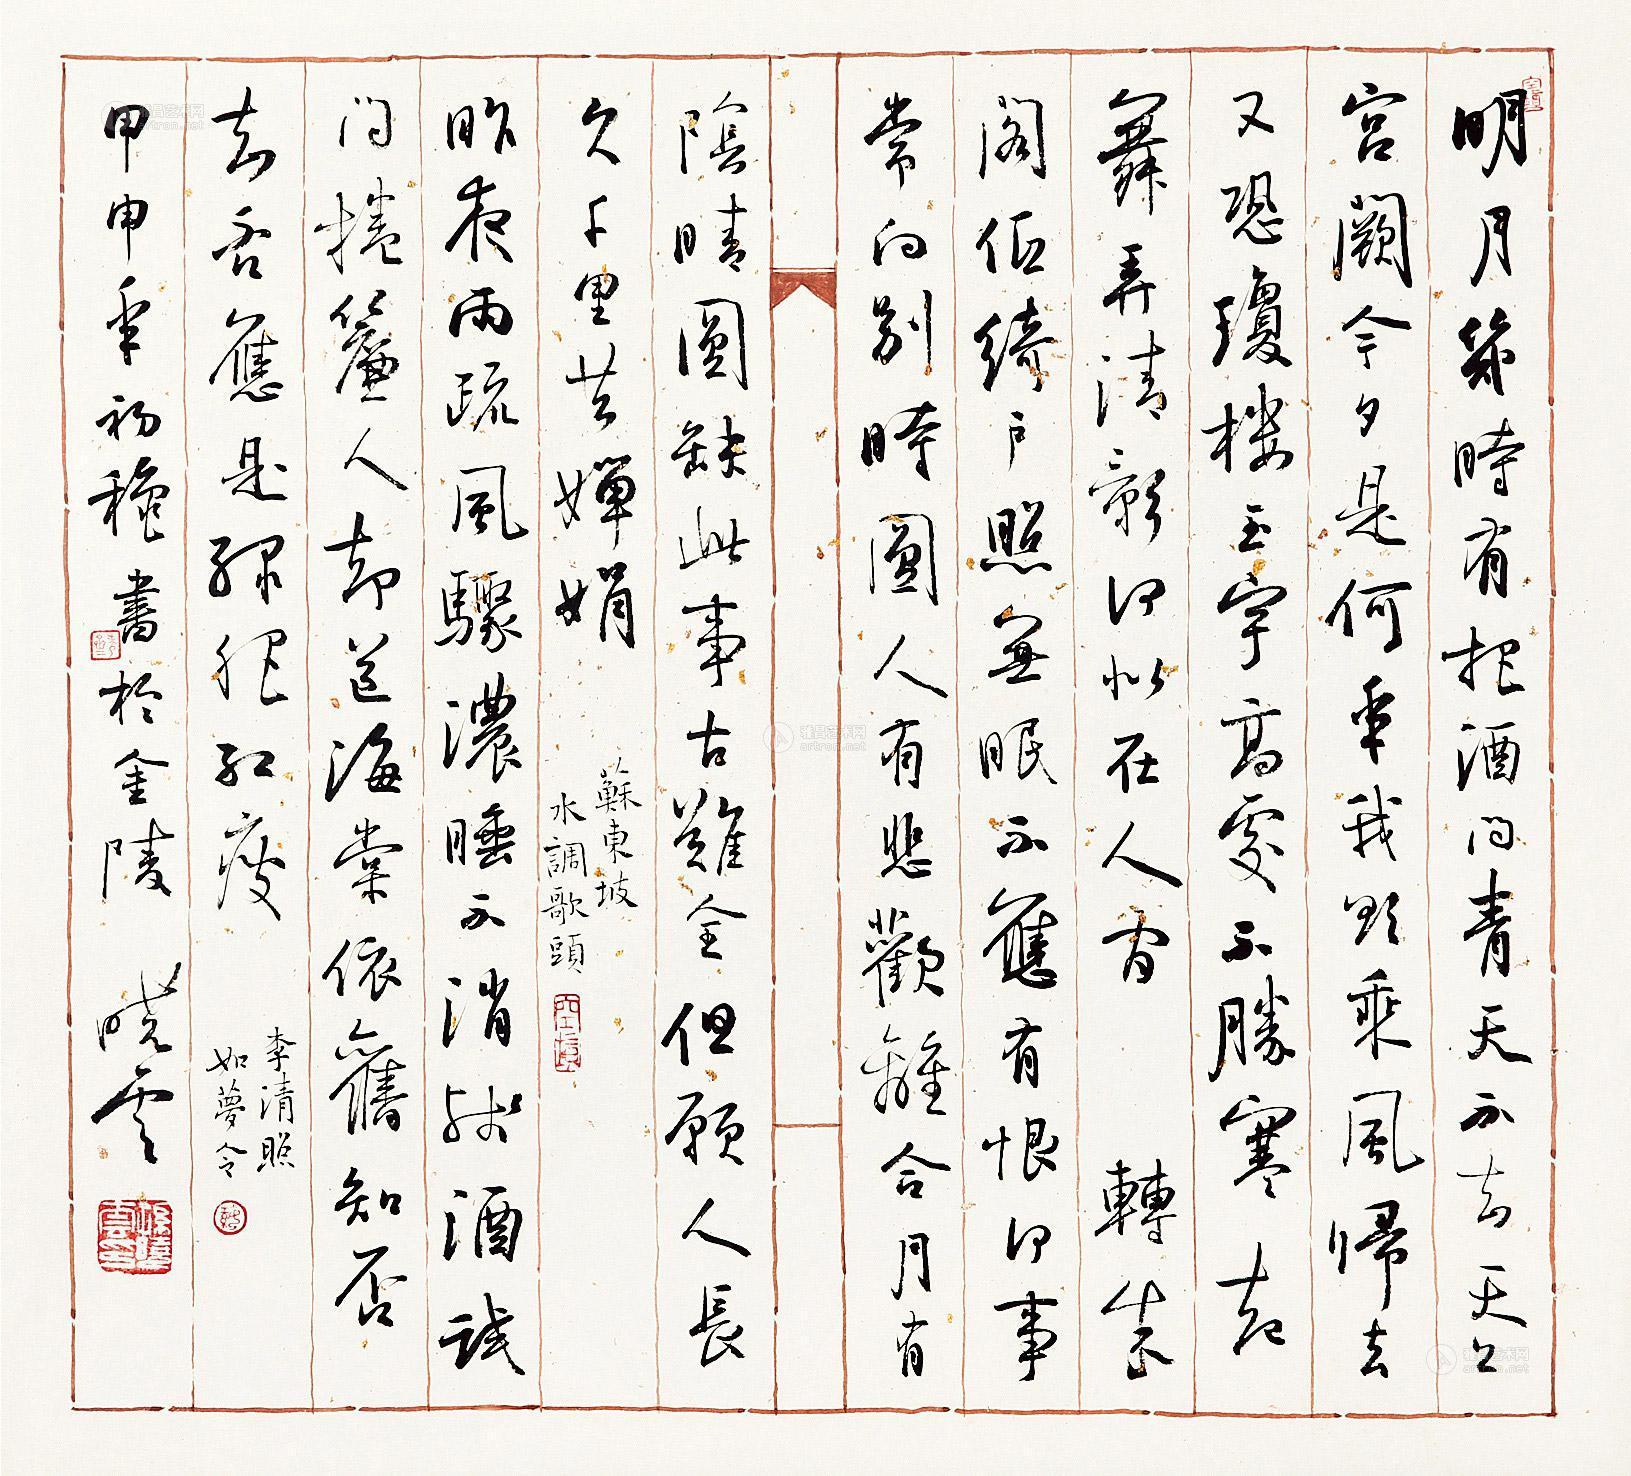 明月幾時有把酒问青天不知天上
宮闕今夕是何年我欲乘風歸去
又恐瓊楼玉宇高處不勝寒起
舞弄清影何似在人間 轉朱
閣低綺户照無眠不應有恨何事
常向別時圓人有悲歡離合月有
陰晴圓缺此事古難全但願人長
久千里共嬋娟
蘇東坡
水調歌頭
昨夜雨疏風驟濃睡不消残酒試
问捲簾人却道海棠依舊知否
知否應是绿肥红瘦
李清照
如夢令
甲申年初穐書於金陵 晓雲
雅昌艺术网
artron.net
雅昌艺术网
artron.net
雅昌艺术网
artron.net